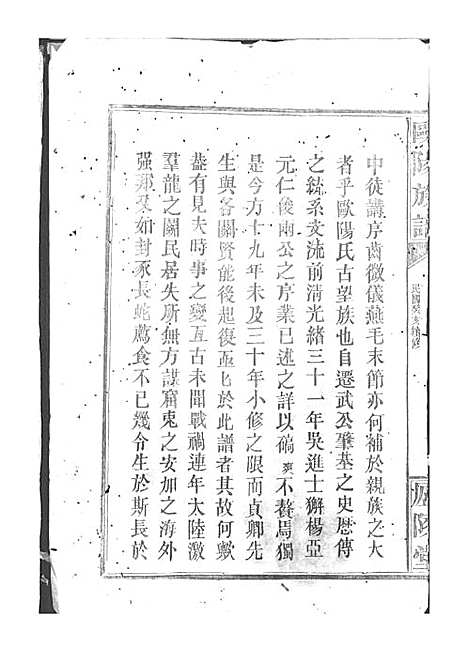 歐陽族譜
民國癸未續修
中徒講序齒微儀燕毛末節亦何補於親族之大
者乎歐陽氏古望族也自遷武公肇基之史歷傳
之統系支流前清光緒三十一年吳進士獬楊亞
元仁俊兩公之序業已述之詳以碻爽不贅焉獨
是今方十九年未及三十年小修之限而貞卿先
生與各關賢能後起復亟亟於此譜者其故何歟
蓋有見夫時事之變亙古未聞戰禍連年大陸激
羣龍之鬬民居失所無方謀窟兎之安加之海外
强鄰又如封豕長蛇薦食不已幾令生於斯長於